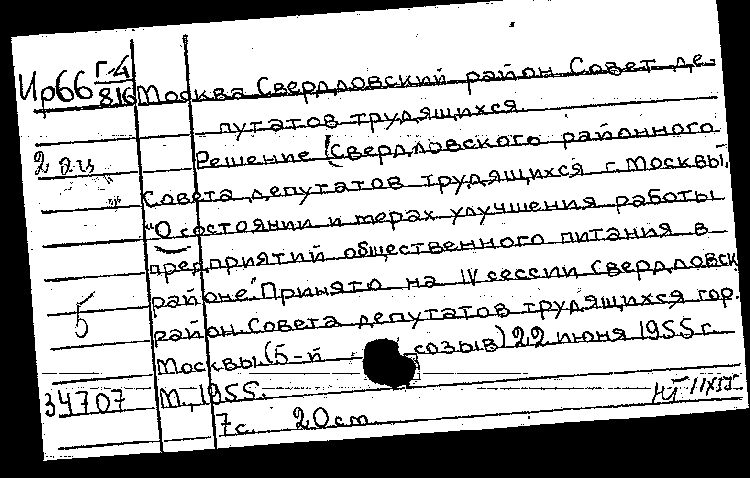 Ир66 Г-4/816 Москва Свердловский район Совет де-
путатов трудящихся.
2 эц Решение Свердловского районного
Совета депутатов трудящихся г. Москвы,
"О состоянии и мерах улучшения работы
предприятий общественного питания в
районе". Принято на IV сессии Свердловск
5 район. Совета депутатов трудящихся гор.
Москвы (5-й созыв) 22 июня 1955 г.
34707 М., 1955.
7 с. 20 см